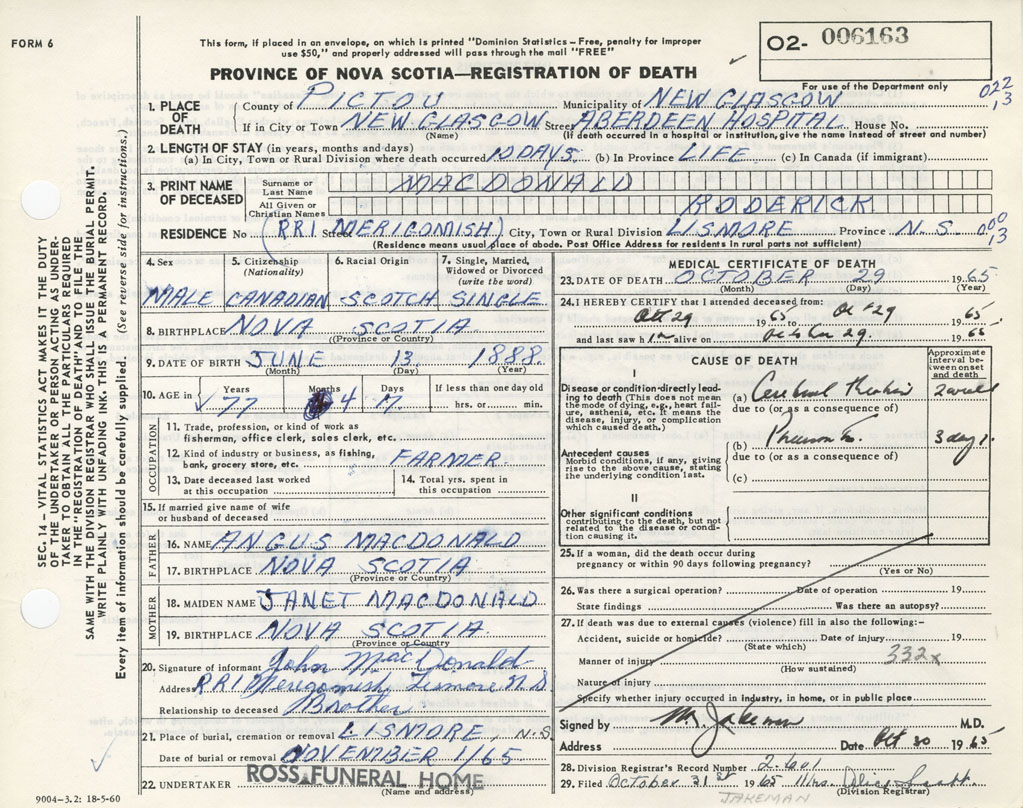 FORM 6
This form, if placed in an envelope, on which is printed "Dominion Statistics - Free, penalty for improper
use $50," and properly addressed will pass through the mail "FREE"
O2- 006163
PROVINCE OF NOVA SCOTIA—REGISTRATION OF DEATH
For use of the Department only
022
13
1. PLACE OF DEATH
County of PICTOU Municipality of NEW GLASGOW
If in City or Town NEW GLASGOW Street ABERDEEN HOSPITAL House No.
(Name) (If death occurred in a hospital or institution, give the name instead of street and number)
2. LENGTH OF STAY (in years, months and days)
(a) In City, Town or Rural Division where death occurred 10 DAYS. (b) In Province LIFE (c) In Canada (if immigrant)
3. PRINT NAME OF DECEASED
Surname or Last Name MACDONALD
All Given or Christian Names RODERICK
RESIDENCE No (RR1 Street MERIGOMISH) City, Town or Rural Division LISMORE Province N.S. 000
13
(Residence means usual place of abode. Post Office Address for residents in rural parts not sufficient)
4. Sex 5. Citizenship (Nationality) 6. Racial Origin 7. Single, Married, Widowed or Divorced (write the word)
MALE CANADIAN SCOTCH SINGLE
8. BIRTHPLACE NOVA SCOTIA
(Province or Country)
9. DATE OF BIRTH JUNE 13 1888.
(Month) (Day) (Year)
10. AGE in Years Months Days If less than one day old
77 4 hrs. or min.
OCCUPATION
11. Trade, profession, or kind of work as
fisherman, office clerk, sales clerk, etc.
12. Kind of industry or business, as fishing,
bank, grocery store, etc. FARMER
13. Date deceased last worked
at this occupation
14. Total yrs. spent in
this occupation
15. If married give name of wife
or husband of deceased
FATHER
16. NAME ANGUS MACDONALD
17. BIRTHPLACE NOVA SCOTIA
(Province or Country)
MOTHER
18. MAIDEN NAME JANET MACDONALD
19. BIRTHPLACE NOVA SCOTIA
(Province or Country)
20. Signature of informant John MacDonald
Address RR1 Merigomish, Lismore N.S.
Relationship to deceased Brother
21. Place of burial, cremation or removal LISMORE, N.S.
Date of burial or removal NOVEMBER 1/65
22. UNDERTAKER ROSS FUNERAL HOME
(Name and address)
MEDICAL CERTIFICATE OF DEATH
23. DATE OF DEATH OCTOBER 29 1965
(Month) (Day) (Year)
24. I HEREBY CERTIFY that I attended deceased from:
Oct 29 1965 Oct 29 1965
and last saw him alive on October 29. 1965
CAUSE OF DEATH
Approximate interval between onset and death
I
Disease or condition directly leading to death (This does not mean the mode of dying, e.g., heart failure, asthenia, etc. It means the disease, injury, or complication which caused death.)
(a) Cerebral
due to (or as a consequence of)
Antecedent causes
Morbid conditions, if any, giving rise to the above cause, stating the underlying condition last.
(b) 3 days.
due to (or as a consequence of)
(c)
II
Other significant conditions
contributing to the death, but not related to the disease or condition causing it.
25. If a woman, did the death occur during
pregnancy or within 90 days following pregnancy?
(Yes or No)
26. Was there a surgical operation? Date of operation 19
State findings Was there an autopsy?
27. If death was due to external causes (violence) fill in also the following:-
Accident, suicide or homicide? Date of injury 19
(State which)
Manner of injury 332x
(How sustained)
Nature of injury
Specify whether injury occurred in industry, in home, or in public place
Signed by M Jakeman M.D.
Address Date Oct 30 1965
28. Division Registrar's Record Number 2601
29. Filed October 31st 1965 Mrs. Alice
(Division Registrar)
JAKEMAN
SEC. 14 — VITAL STATISTICS ACT MAKES IT THE DUTY
OF THE UNDERTAKER OR PERSON ACTING AS UNDER-
TAKER TO OBTAIN ALL THE PARTICULARS REQUIRED
IN THE "REGISTRATION OF DEATH" AND TO FILE THE
SAME WITH THE DIVISION REGISTRAR WHO SHALL ISSUE THE BURIAL PERMIT.
WRITE PLAINLY WITH UNFADING INK. THIS IS A PERMANENT RECORD.
Every item of information should be carefully supplied. (See reverse side for instructions.)
9004-3.2: 18-5-60